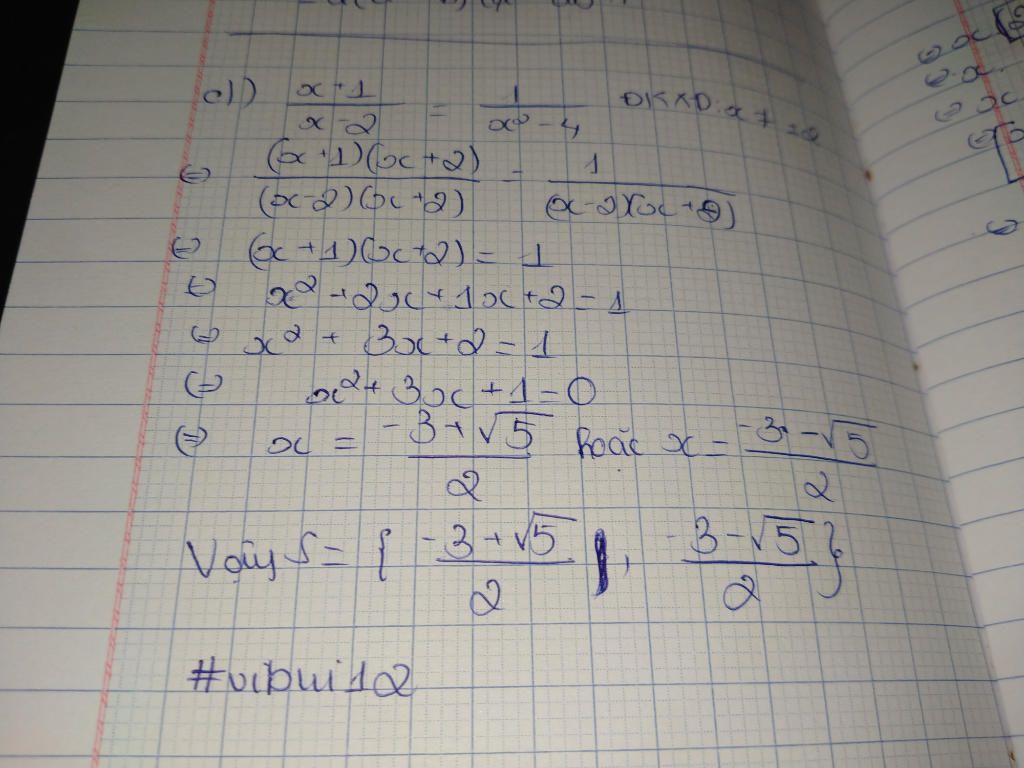 c)) x+1/x-2 = 1/x²-4 ĐKXĐ: x ≠ ±2
⇔ (x+1)(x+2)/(x-2)(x+2) = 1/(x-2)(x+2)
⇔ (x+1)(x+2) = 1
⇔ x²+2x+1x+2=1
⇔ x² + 3x+2=1
⇔ x²+3x+1=0
⇔ x = -3+√5/2 hoặc x = -3-√5/2
Vậy S = { -3+√5/2 , -3-√5/2 }
#vibui12